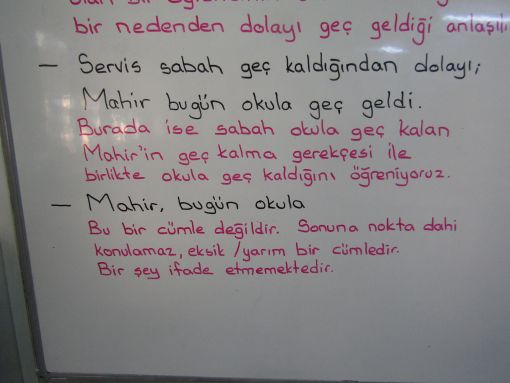 bir nedenden dolayı geç geldiği anlaşılı
— Servis sabah geç kaldığından dolayı;
Mahir bugün okula geç geldi.
Burada ise sabah okula geç kalan
Mahir'in geç kalma gerekçesi ile
birlikte okula geç kaldığını öğreniyoruz.
— Mahir, bugün okula
Bu bir cümle değildir. Sonuna nokta dahi
konulamaz, eksik /yarım bir cümledir.
Bir şey ifade etmemektedir.